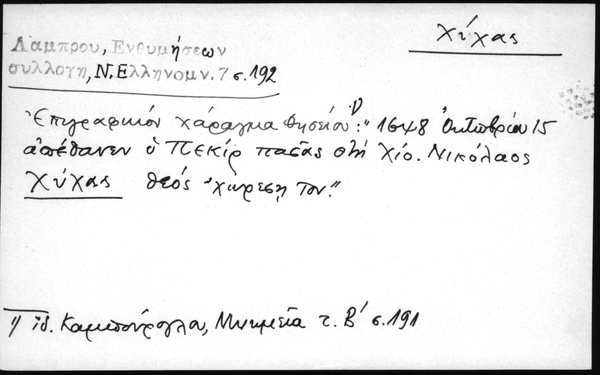 Χύχας
Λάμπρου, Ενθυμήσεων
συλλογή, Ν. Ελληνομν. 7 σ. 192
Ἐπιγραφικόν χάραγμα Θησείου 1): "1648 Ὀκτωβρίου 15
ἀπέθανεν ὁ Πεκίρ πασᾶς στή Χίο. Νικόλαος
Χύχας θεός σχωρέση τον."
1) ἰδ. Καμπούρογλα, Μνημεῖα τ. Β' σ. 191